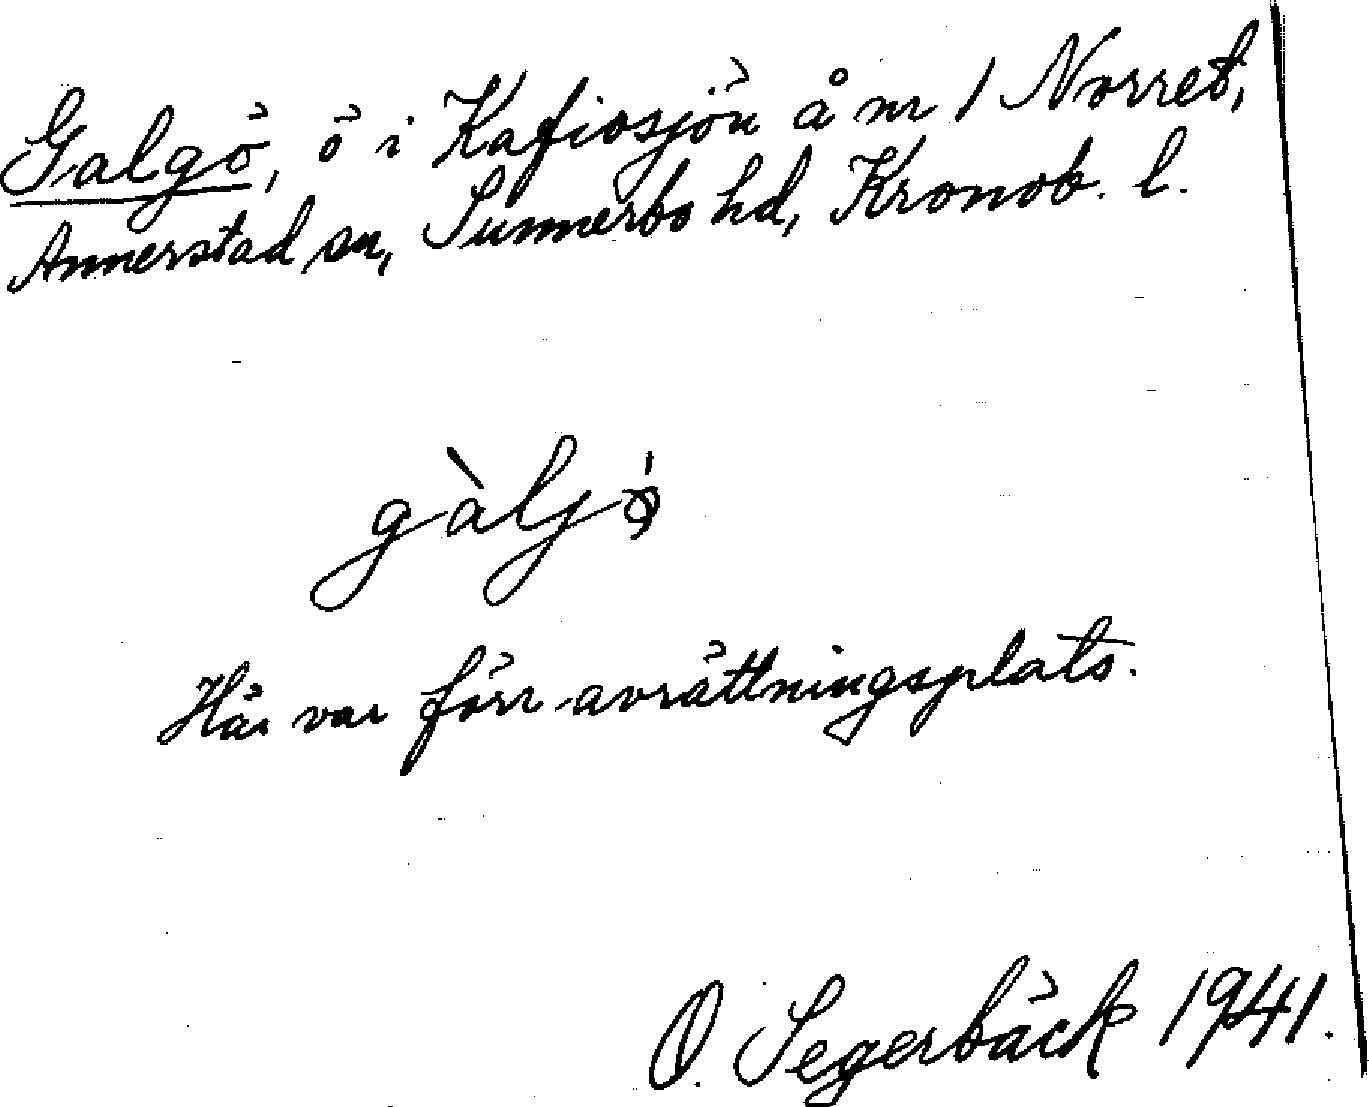 Galgö, ö i Kafiosjön å nr 1 Norret,
Annerstad sn, Sunnerbo hd, Kronob. l.
gàljö
Här var förr avrättningsplats.
O. Segerbäck 1941.